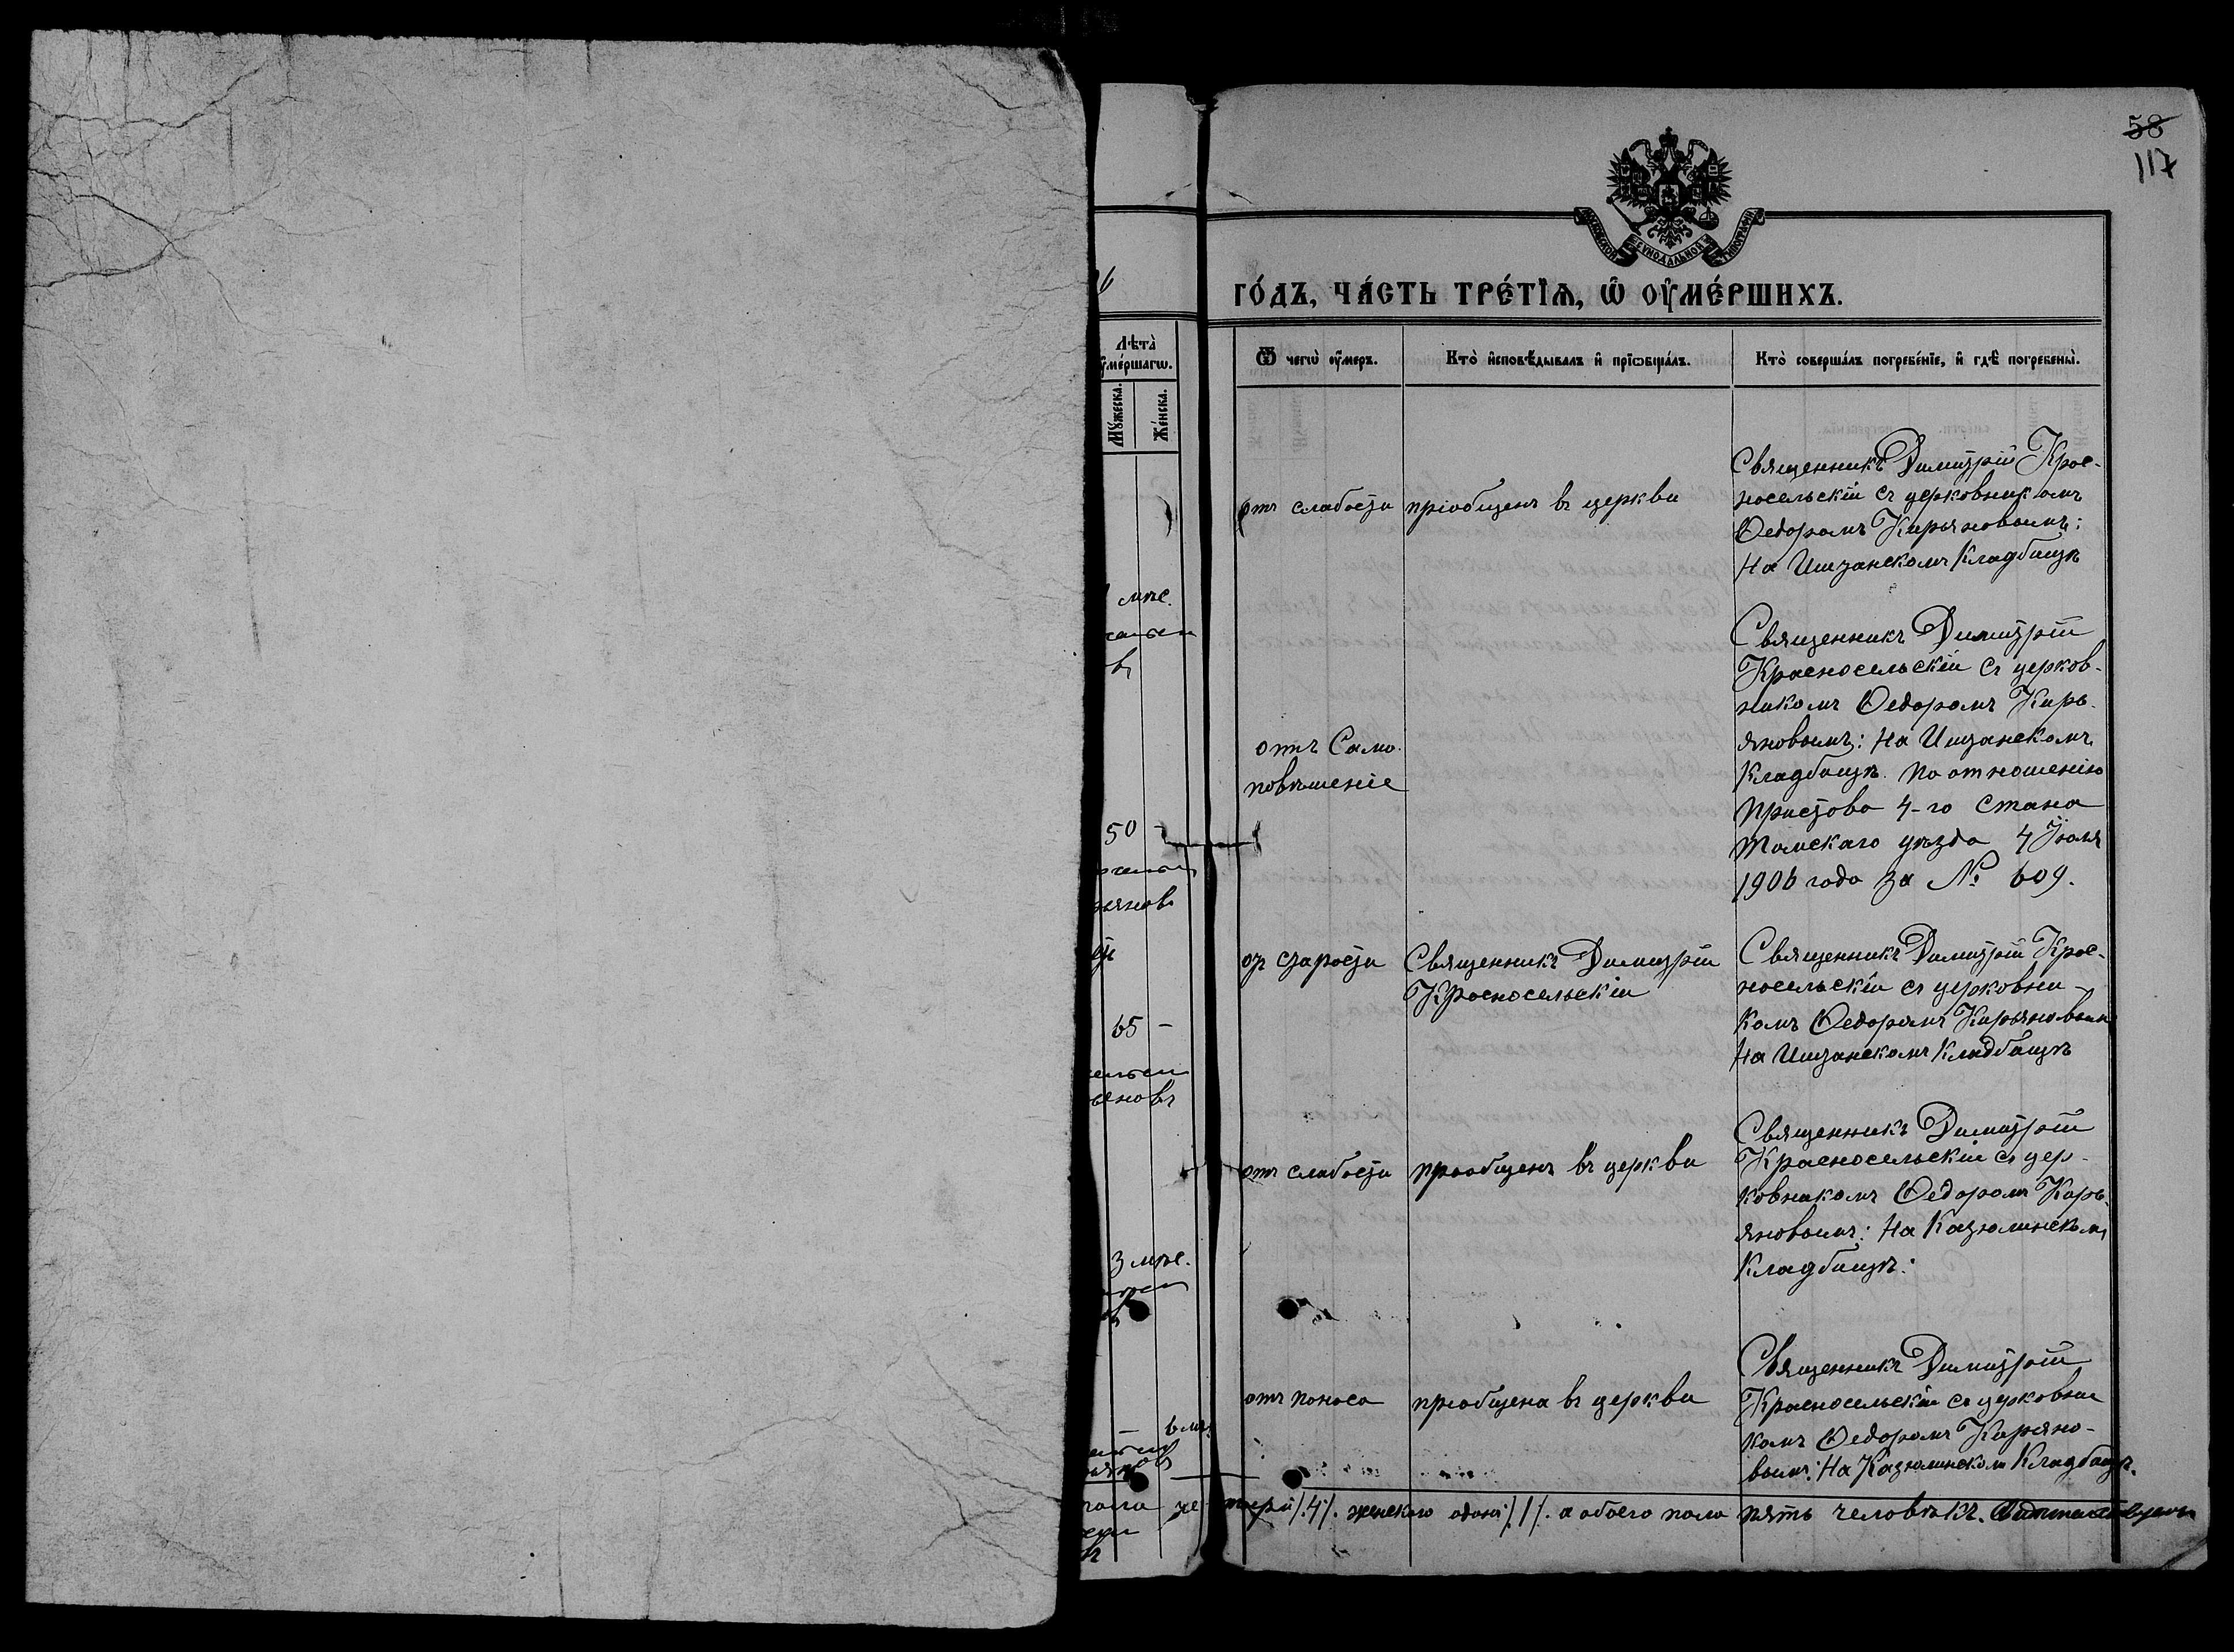 58
117
МОСКОВСКОЙ СѴНОДАЛЬНОЙ ТИПОГРАФІИ
6
го́дъ, ча́сть тре́тїѧ, ѡ҆ ᲂу҆ме́ршихъ.
Лѣта̀
ᲂу҆ме́ршагѡ.
Мꙋ́жеска.
Же́нска.
Ѿ чегѡ̀ ᲂу҆́меръ.
Кто̀ и҆сповѣ́дывалъ и҆ прїѡбща́лъ.
Кто̀ соверша́лъ погребе́нїе, и҆ гдѣ̀ погребены̀.
отъ слабости
пріобщенъ въ церкви
Священникъ Димитрій Крас-
носельскій съ церковникомъ
Ѳедоромъ Кирьяновымъ:
На Иштанскомъ Кладбищѣ
мѣс.
50 -
отъ Само-
повѣшеніе
Священникъ Димитрій
Красносельскій съ церков-
никомъ Ѳедоромъ Кирь-
яновымъ: На Иштанскомъ
Кладбищѣ. По отношенію
Пристава 4-го Стана
Томскаго уѣзда 4 Іюля
1906 года за № 609.
65 -
от старости
Священникъ Димитрій
Красносельскій
Священникъ Димитрій Крас-
носельскій съ церковни-
комъ Ѳедоромъ Кирьяновым
На Иштанскомъ Кладбищѣ
3 мѣс.
отъ слабости
приобщенъ въ церкви
Священникъ Димитрій
Красносельскій съ цер-
ковникомъ Ѳедоромъ Кирь-
яновымъ: На Казюлинском
Кладбищѣ:
6 мѣс.
отъ поноса
приобщена въ церкви
Священникъ Димитрій
Красносельскій съ церковни
комъ Ѳедоромъ Кирьяно-
вымъ: На Казюлинском Кладбищѣ.
че-тыри /.4/. женского одна /.1/. а обоего пола пять человѣкъ.